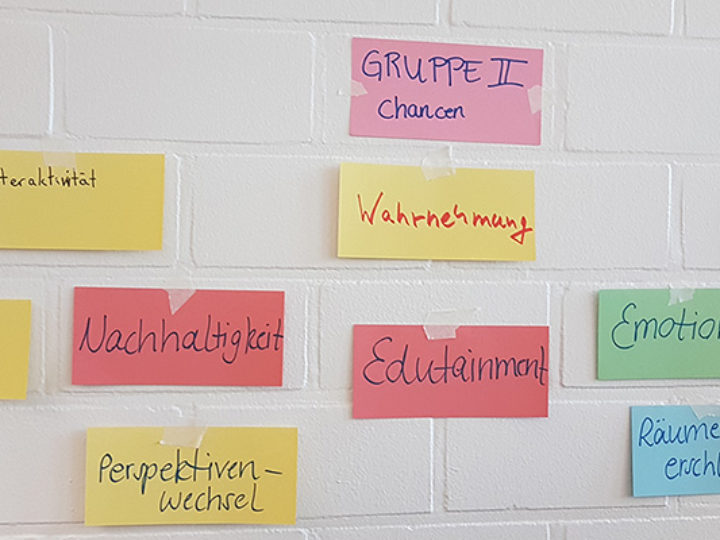 GRUPPE II
Chancen
teraktivität
Wahrnehmung
Nachhaltigkeit
Edutainment
Emotio
Perspektiven-
wechsel
Räume
erschl